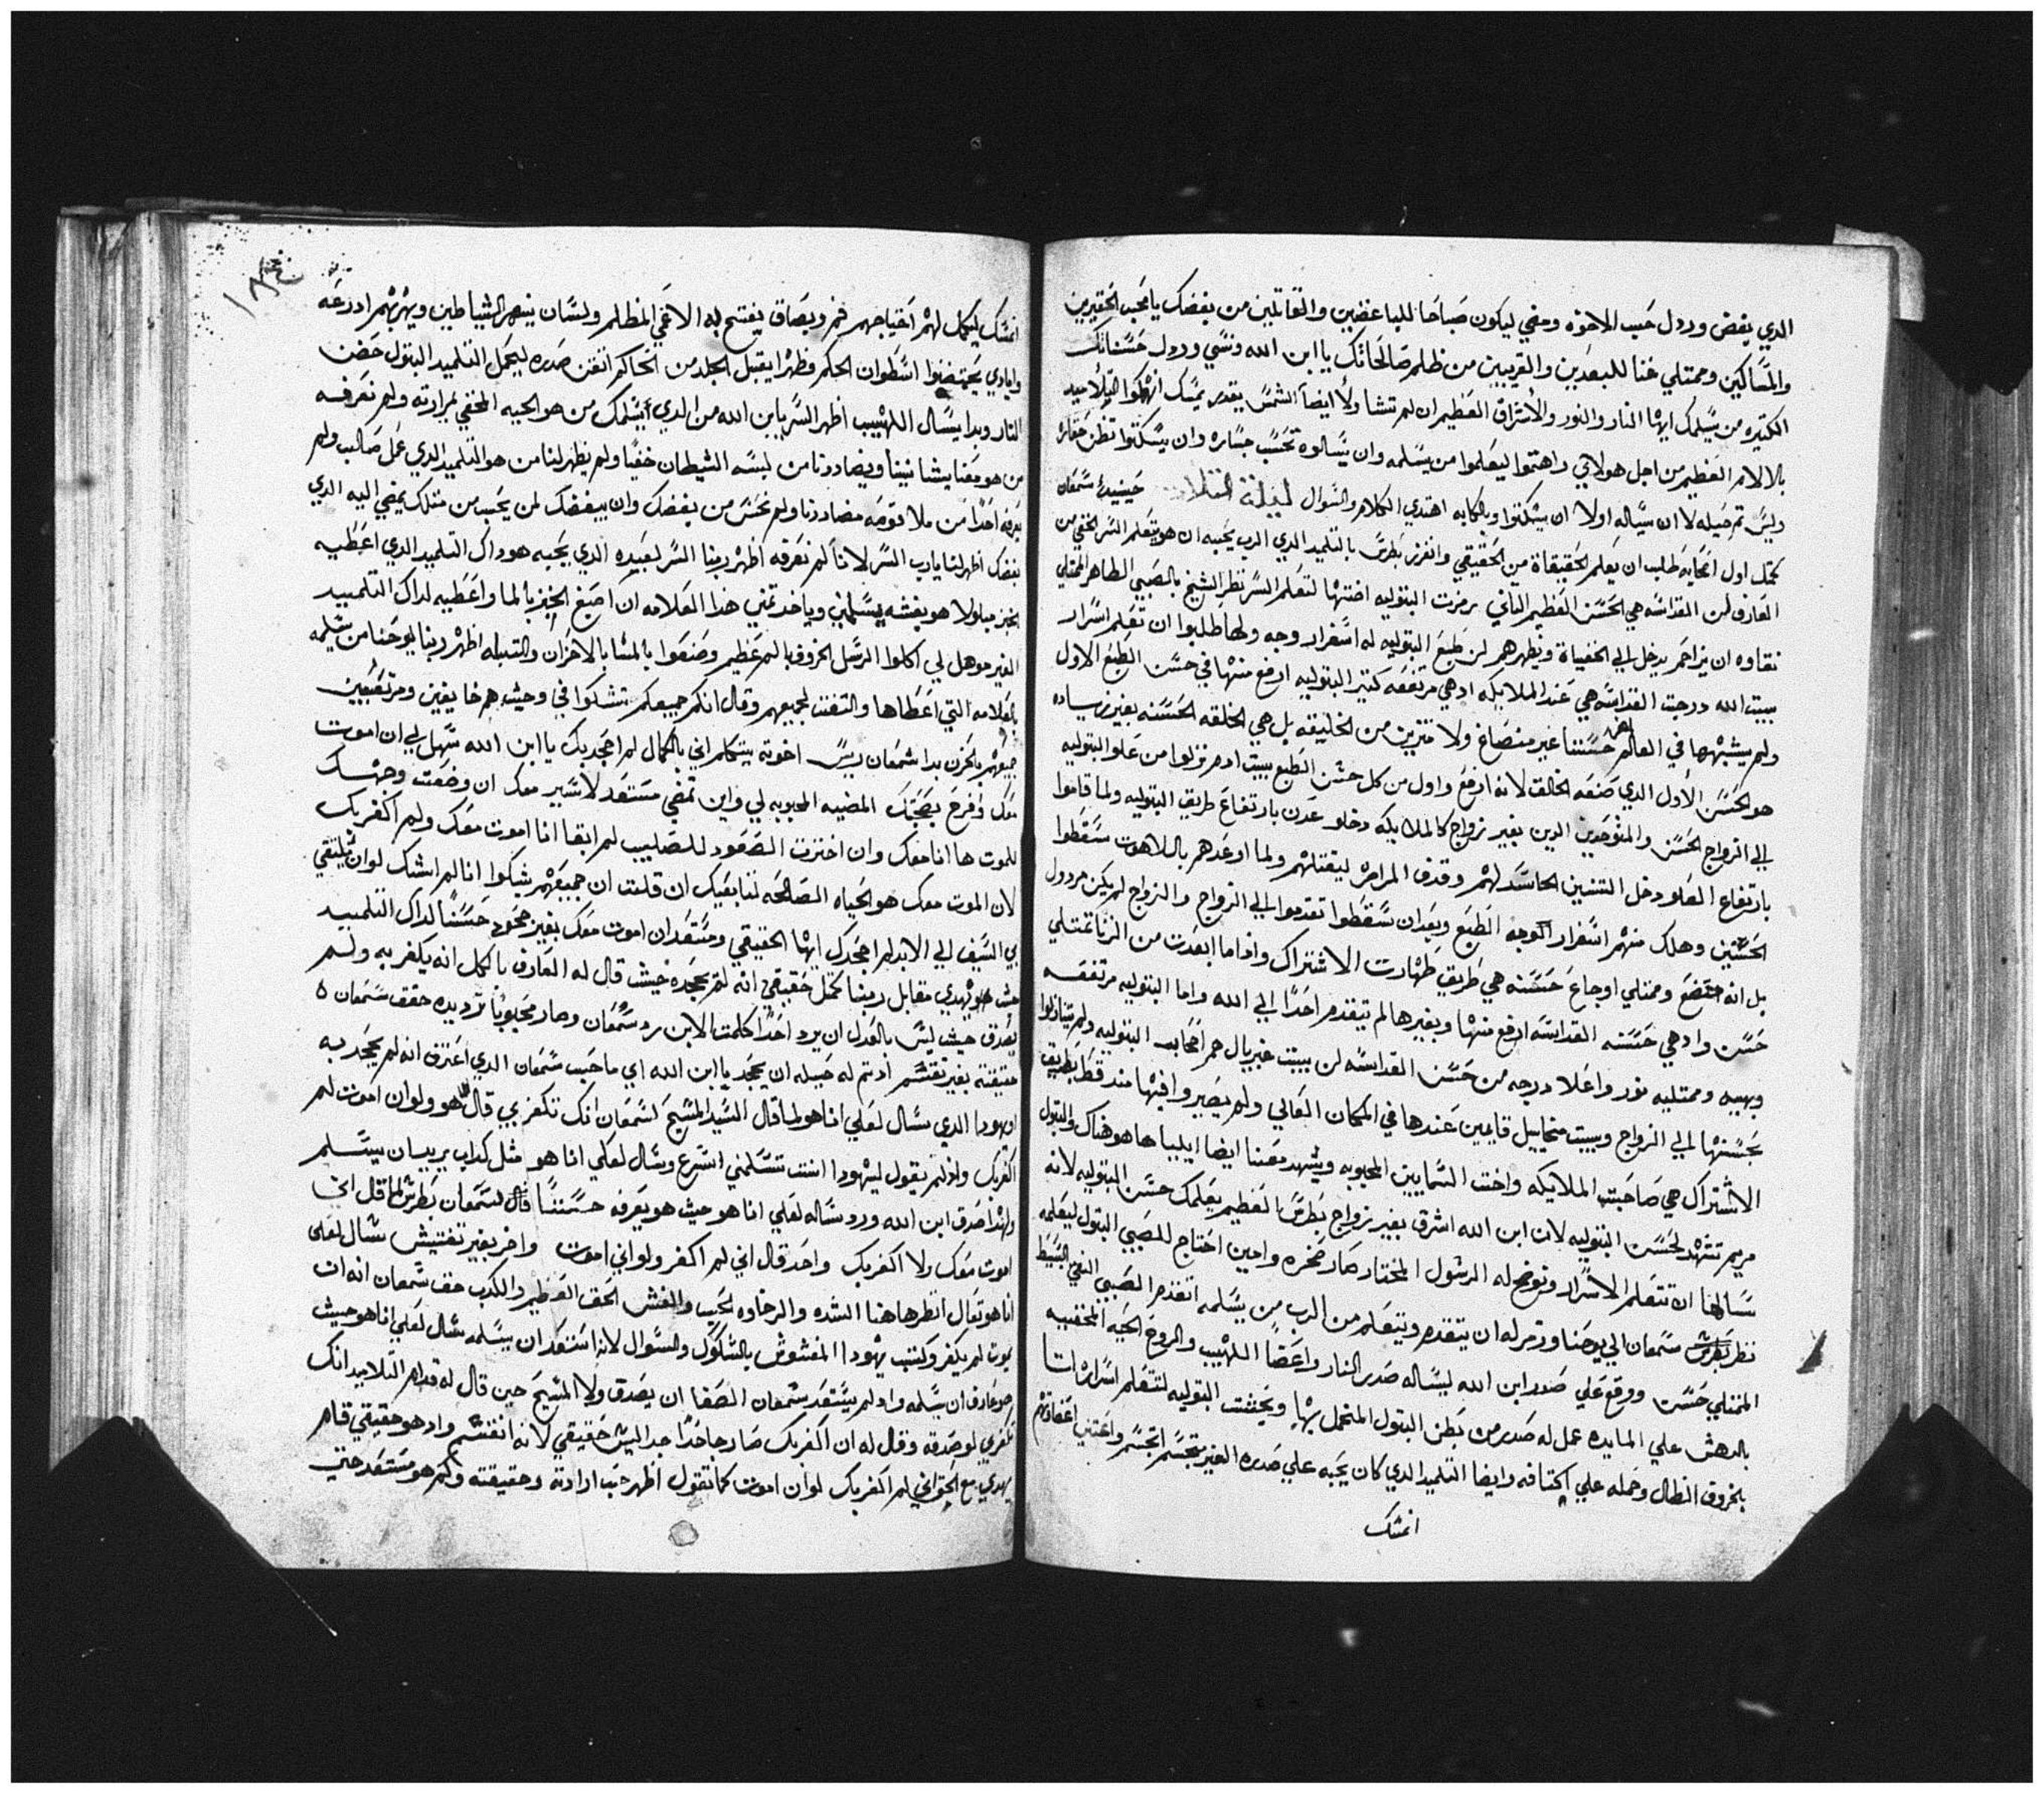 الدي يغض وردول حسب الاخوة ومضي ليكون صباحا للباغضين والقاتلين من يغضك يا محب الحقيرين
والمساكين وممتلي غنا للبعدين والقريبين من ظلم صالحاتك يا ابن الله ونسي وردول حسناتك
الكتيره من يسلمك ايها النار والنور والاشراق العظيم ان لم تشا ولا ايضا الشمس يقدر يمسك انهمكوا التلاميد
بالالام العظيم من اجل هولاي واهتموا ليعلموا من يسلمه وان يسالوه تحسب جساره وان يسكتوا تظن حقاره
وليس تم حيله لا ان سياله اولا ان يسكتوا وبالكابه اهتدي الكلام والسوال ليلة التلات حينيد سمعان
كمتل اول اصحابه طلب ان يعلم الحقيقاة من الحقيقي وانغز بطرس بالتلميد الدي الرب يحبه ان هو يتعلم السر الخفي من
العارف لان القداسه هي الحسن العظيم التاني رمزت البتوليه اختها لتعلم السر نظر الشيخ بالصبي الطاهر الممتلي
نقاوه ان يزاحم يدخل الي الخفياة ويظهرهم لان طبع البتوليه له اسفرار وجه ولها طلبوا ان تعلم اسرار
بيت الله ودرجت القداسه هي عند الملايكه ادهي مرتفعه كتير البتوليه ارفع منها في حسن الطبع الاول
ولم يشبهها في العالم حسننا غير منصاغ ولا متزين من الخليقه بل هي الخلقه الحسنه بغير زياده
هو الحسن الاول الدي صنعه الخالق لانه ارفع واول من كل حسن الطبع بيت ادم نزلوا من علو البتوليه
الي الزواج الحسن والمتوحدين الدين بغير زواج كالملايكه دخلو عدن بارتفاع طريق البتوليه ولما قاموا
بارتفاع العلو دخل التنين الحاسد لهم وقدف المراره ليقتلهم ولما اوعدهم باللاهوت سقطوا
الحسنين وهلك منهم اسفرار الوجه الطبع وبعد ان سقطوا تقدموا الي الزواج والزواج لم يكن مردول
بل انه متضع وممتلي اوجاع حسنه هي طريق طهارت الاشتراك واداما ابعدت من الزنا تمتلي
حسن وادهي حسنه القداسه ارفع منها وبغيرها لم يتقدم احدا الي الله واما البتوليه مرتفعه
وبهيه وممتليه نور واعلا درجه من حسن القداسه لان بيت غبريال هم اصحاب البتوليه ولم يتنازلوا
بحسنها الي الزواج وبيت ميخاييل قايمين عندها في المكان العالي ولم يصيروا فيها مند قط بطريق
الاشتراك هي صاحبت الملايكه واخت السمايين المحبوبه ويشهد معنا ايضا ايليا ها هو هناك والبتول
مريم تشهد لحسن البتوليه لان ابن الله اشرق بغير زواج بطرس العظيم يعلمك حسن البتوليه لانه
سالها ان تتعلم الاسرار وتوضح له الرسول المختار صار صخره وامين احتاج للصبي البتول ليعلمه
نظر بطرس سمعان الي يوحنا ورمز له ان يتقدم ويتعلم من الرب من يسلمه اتقدم الصبي النقي البسيط
الممتلي حسن ووقع علي صدر ابن الله ليساله صدر النار واعضا اللهيب والروح الحيه المخفيه
بالدهش علي المايده عمل له صدر من بطن البتول المتحمل بها ويحتفت البتوليه لتتعلم اسرار اتا
بخروف الضال وحمله علي اكتافه وايضا التلميد الدي كان يحبه علي صدره الغير متجسم اتجسم واعتني اعضاوهم
انمسك
انمسك ليكمل لهم احتياجهم فم وبصاق يفتح به الاعمي المظلم ولسان ينتهر الشياطين ويهزبهم ادرعه
وايادي يحتضنوا اسطوان الحكم وظهرا يقبل الجلد من الحاكم اتقن صدره ليحمل التلميد البتول حضن
النار وبدا يسال اللهيب اظهر السر يا ابن الله من الدي يسلمك من هو الحيه المخفي لمرارته ولم نعرفه
من هو معنا يشا نبيتا ويضاددنا من لبسه الشيطان خفيا ولم يظهر لنا من هو التلميد الدي عمل صالب ولم
يعرفه احدا من ملا قومه مضاددنا ولم نحس من يغضك وان يبغضك لمن يحب من متلك يمضي اليه الدي
بغضك اظهر لنا يا رب السر لاننا لم نعرفه اظهر ربنا السر لعبيده الدي يحبه هو داك التلميد الدي اعطيه
الخبز مبلولا هو بغشه يسلمني وياخد تمني هدا العلامه ان اصبغ الخبز بالما واعطيه لداك التلميد
الغير موهل لي اكلوا الرسل الخروف بالم عظيم وصنعوا بالمسا بالاحزان والتبله اظهر ربنا ليوحنا من يسلمه
بالعلامه التي اعطاها والتفت لجميعهم وقال انكم جميعكم تشكوا في وحيت هم خايفين ومرتعبين
جميعهم بالحزن بدا شمعان ريس اخوته يتكلم اني بالكمال لم احجد بك يا ابن الله سهل لي ان اموت
معك وافرح بصحبتك المضيه المحبوبه لي واين تمضي مستعد لاسير معك ان وضعت وجهك
للموت ها انا معك وان اخترت الصعود للصليب لم ابقا انا اموت معك ولم اكفر بك
لان الموت معك هو الحياه الصالحه لتابعيك ان قلت ان جميعهم شكوا انا لم اشك لو ان يلتقي
بي السيف الي الابد لم احجدك ايها الحقيقي ومستعد ان اموت معك بغير جحود حسنا لداك التلميد
حيت هو يهدي مقابل ربنا كمتل حقيقي انه لم يجحده حيت قال له العارف بالكل انه يكفر به ولم
يصدق حيت ليس بالعدل ان يرد احدا كلمت الابن رد سمعان وصار محبوبا ترديده حقق سمعان
حقيقته بغير تفتيش ادتم له حيله ان يجحد يا ابن الله اي ما حسب سمعان الدي اعترف انه لم يجحد به
او يهودا الدي سال لعلي انا هو لما قال السيد المسيح لسمعان انك تكفر بي قال هو ولو ان اموت لم
اكفر بك وادلم يقول ليهودا انت تسلمني اسرع وسال لعلي انا هو مثل كداب يريسان يسلم
ولهدا صدق ابن الله ورد ساله لعلي انا هو حيت هو يعرفه حسننا قال لسمعان بطرس لما قال اني
اموت معك ولا اكفر بك واحد قال اني لم اكفر ولو اني اموت واخر بغير تفتيش سال لعلي
انا هو تعال انظر هاهنا الشده والرخاوه الحب والغش الحق العظيم والكدب حقق سمعان انه ان
يموت لم يكفر وكتب يهودا المغشوش بالشكوك والسوال لانه استعد ان يسلمه سال لعلي انا هو حيت
هو عارف ان يسلمه وادلم يستعد سمعان الصفا ان يصدق ولا المسيح حين قال له قدام التلاميد انك
تكفر بي لو صدقه وقال له ان اكفر بك صار جاحدا جدا ليس حقيقي لانه انقسم وادهو حقيقي قام
يهدي مع الحق اني لم اكفر بك لو ان اموت كما تقول اظهر حب ارادته وحقيقته وكم هو مستعد حتي